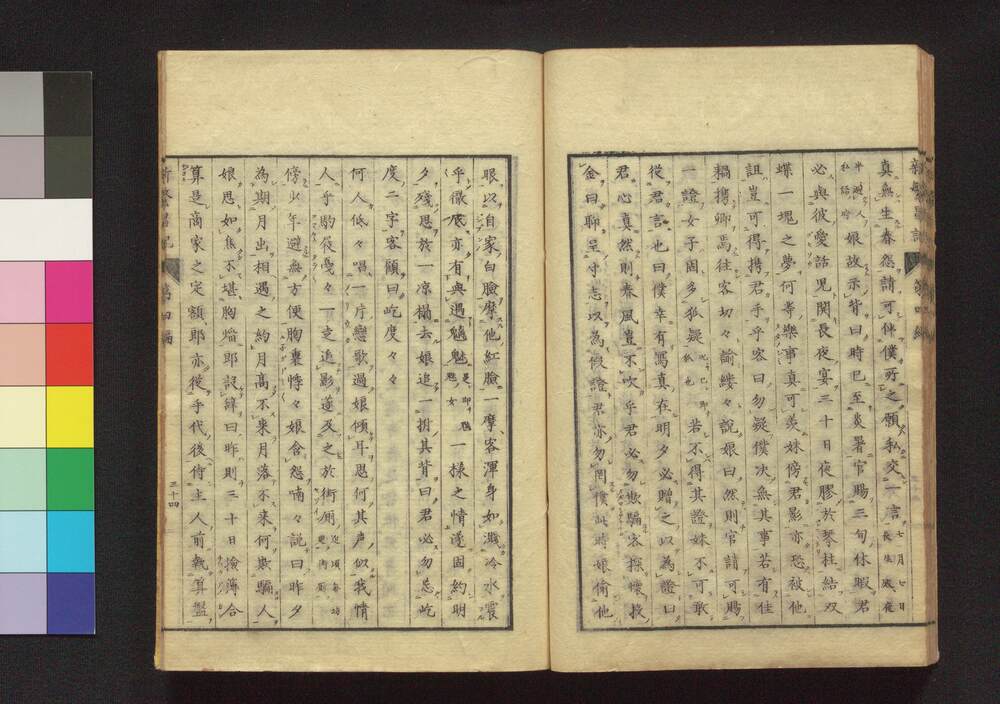 真無生春怨請可伴僕所之願私交一言七月七日長生殿夜
半無人私語時娘故示背曰時已至炎暑官賜三旬休暇君
必與彼愛話児関長夜宴三十日夜膠於琴柱結双
蝶一塊之夢何等樂事真可羨妹傍君影亦恐被他
詛豈可得携君手乎客曰勿疑僕決無其事若有佳
耦携卿焉往客切々諭縷々説娘曰然則官請可賜
一證女子固多狐疑若不得其證妹不可敢
從君言也曰僕幸有寫真在明夕必贈之以為證曰
君心真然則春風豈不吹乎君必勿欺騙客探懐投
金曰聊呈寸志以為假證君亦勿罔僕此時娘偷他
眼以自家白臉摩他紅臉一摩客渾身如濺冷水震
乎徹底亦有與遇魑魅一樣之情遂固約明
夕殘思於一凉榻去娘追一拊其背曰君必勿忘屹
度二字客顧曰屹度々々
何人低々唱一片戀歌過娘傾耳思何其声似我情
人乎跫々一走追影遂及之於街厠
傍少年避無方便胸裏悸々娘含怨喃々説曰昨夕
為期月出相遇之約月高不来月落不来何欺騙人
娘思如焦不堪胸焰郎設辭曰昨則三十日撿簿合
算是商家之定額郎亦從手代後侍主人前執算盤
新繁昌記 第四編
三十四